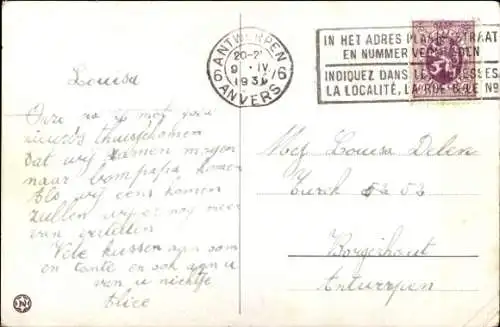 ANTWERPEN
6 20-21 6
9 IV
193
ANVERS
IN HET ADRES PLAATS, STRAAT
EN NUMMER VERMELDEN
INDIQUEZ DANS LES ADRESSES
LA LOCALITÉ, LA RUE & LE No
Louisa
Onze is met
nieuws thuisgekomen
dat wij samen morgen
naar bompapa komen
Als wij eens komen
zullen wij er nog meer
van vertellen
Vele kussen aan oom
en tante en ook aan u
van u nichtje
Alice
Mej Louisa Delen
53
Borgerhout
Antwerpen